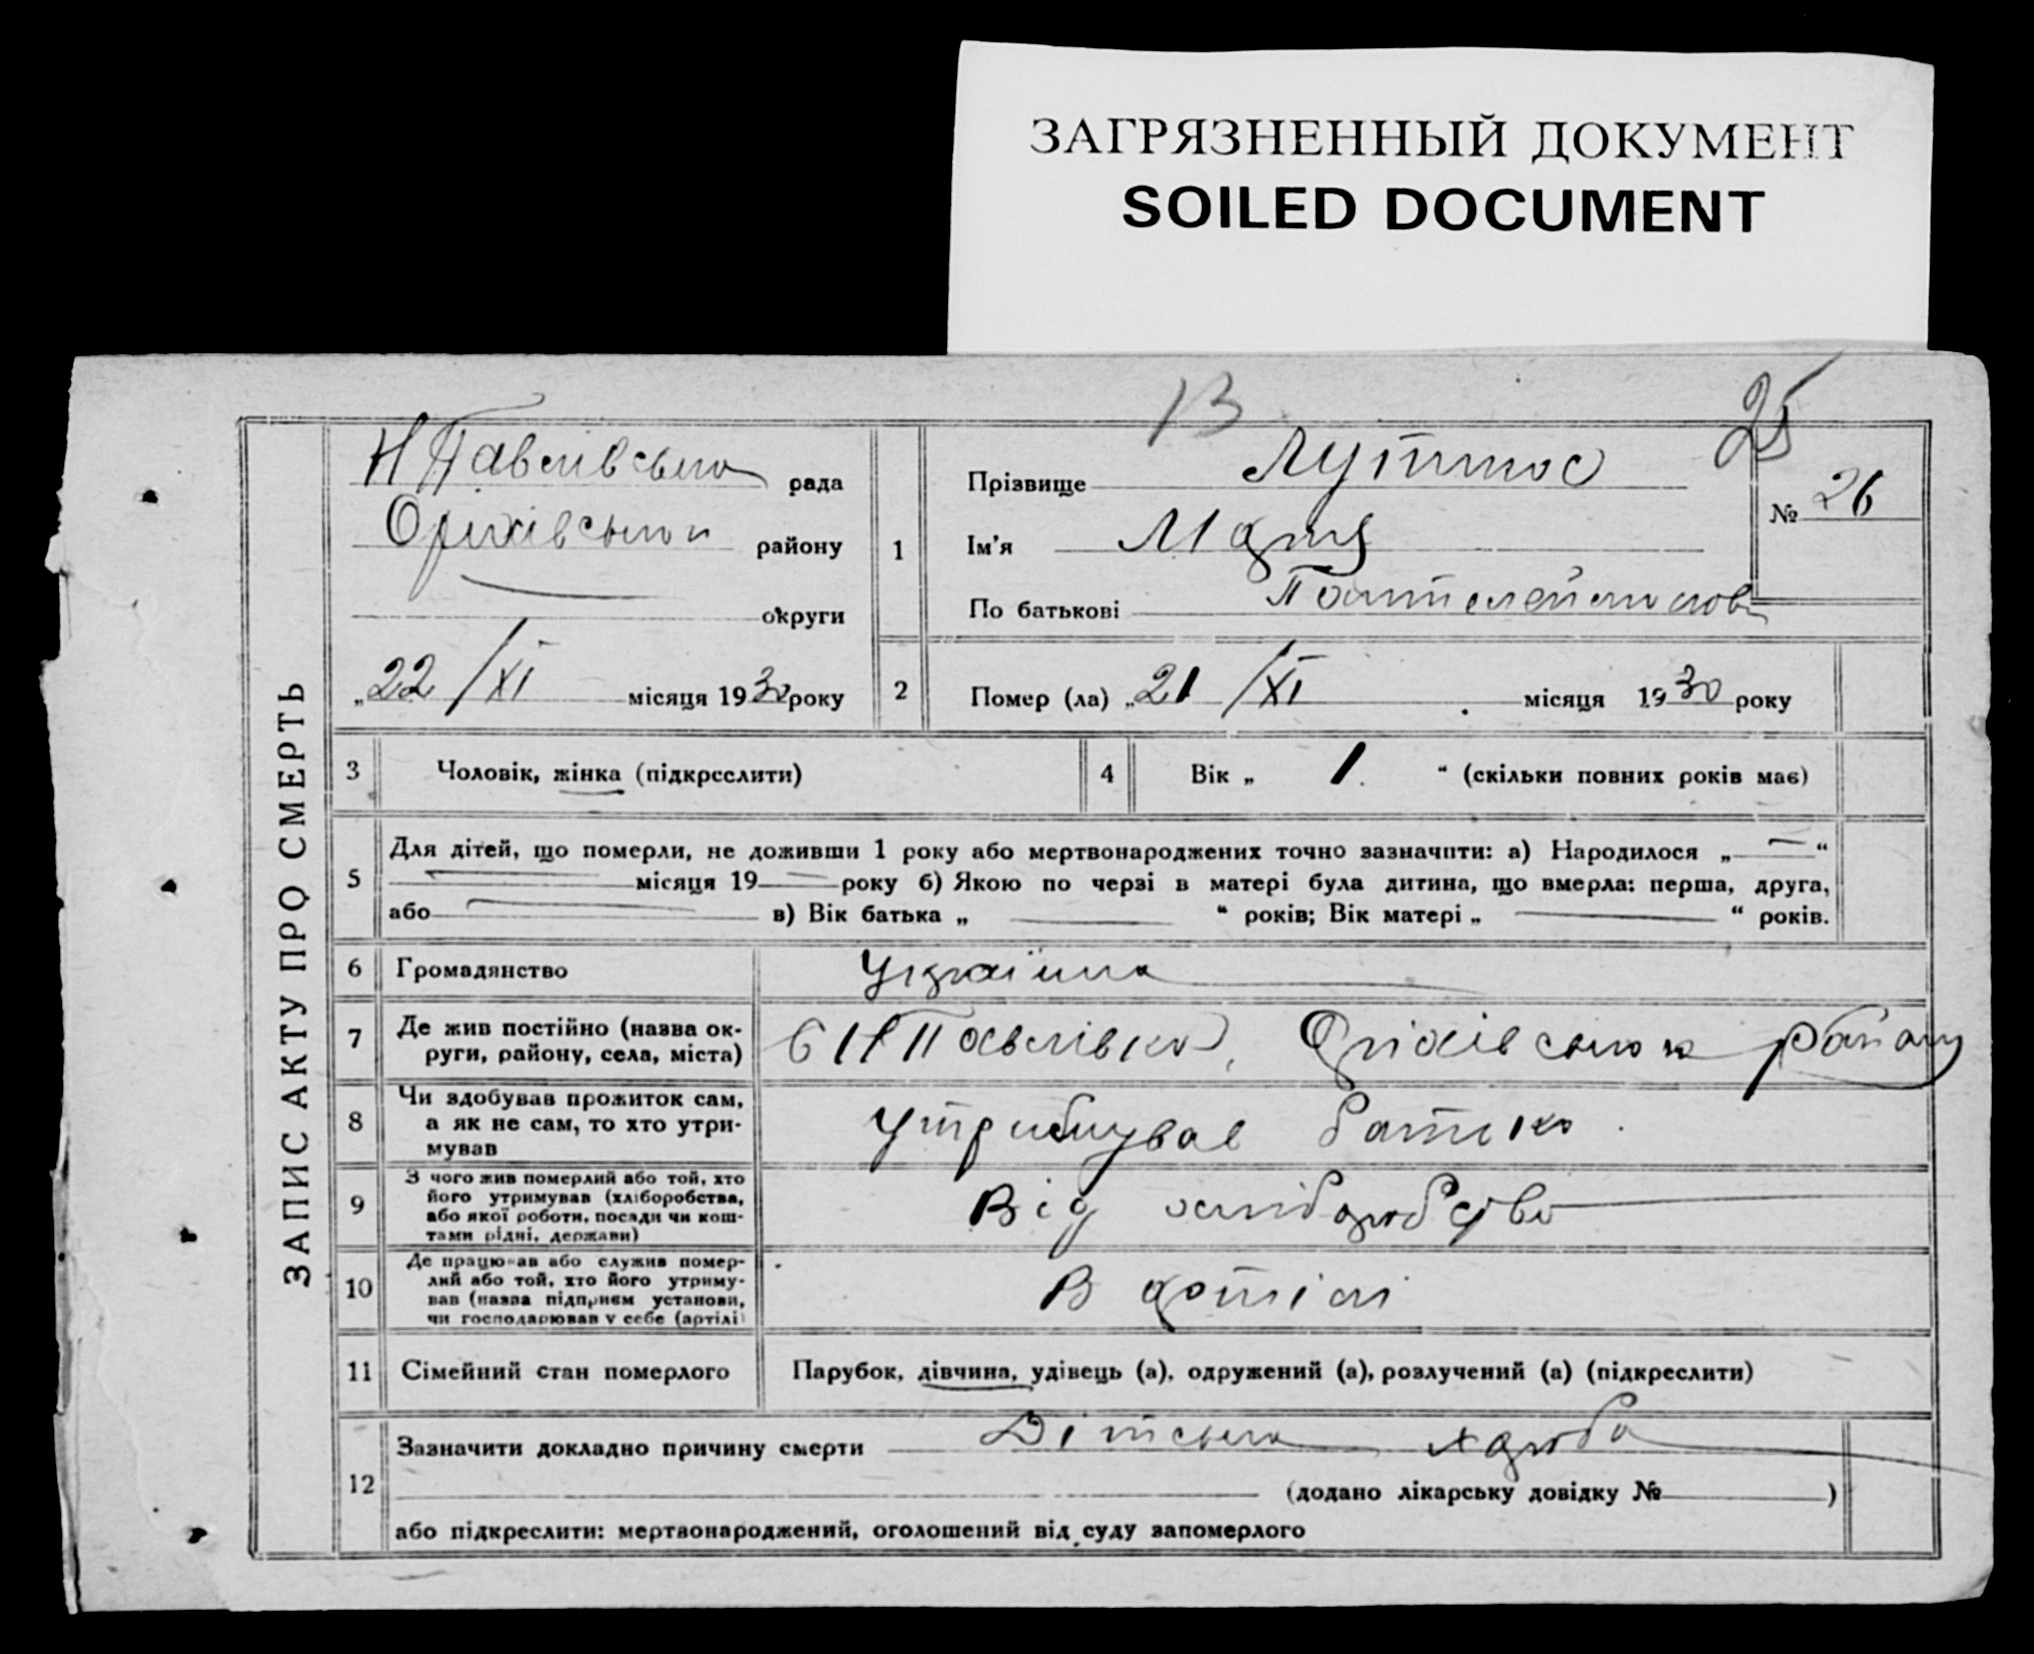 ЗАГРЯЗНЕННЫЙ ДОКУМЕНТ
SOILED DOCUMENT
13
25
ЗАПИС АКТУ ПРО СМЕРТЬ
Н Павлівська рада
Оріхівського району
округи
„22/XI місяця 1930 року
№ 26
1
Прізвище
Ім'я Марія
По батькові
2
Помер (ла) „21/XI місяця 1930 року
3
Чоловік, жінка (підкреслити)
4
Вік „ 1. “ (скільки повних років має)
5
Для дітей, що померли, не доживши 1 року або мертвонароджених точно зазначити: а) Народилося „ “
місяця 19 року б) Якою по черзі в матері була дитина, що вмерла: перша, друга,
або в) Вік батька „ “ років; Вік матері „ “ років.
6
Громадянство
Українка
7
Де жив постійно (назва ок-
руги, району, села, міста)
с Н Павлівка, Оріхівського району
8
Чи здобував прожиток сам,
а як не сам, то хто утри-
мував
утримував батько
9
З чого жив померлий або той, хто
його утримував (хліборобства,
або якої роботи, посади чи кош-
тами рідні, держави)
Від хліборобства
10
Де працював або служив помер-
лий або той, хто його утриму-
вав (назва підприєм установи,
чи господарював у себе (артілі)
В артілі
11
Сімейний стан померлого
Парубок, дівчина, удівець (а), одружений (а), розлучений (а) (підкреслити)
12
Зазначити докладно причину смерти Дітська хороба
(додано лікарську довідку № )
або підкреслити: мертвонароджений, оголошений від суду запомерлого